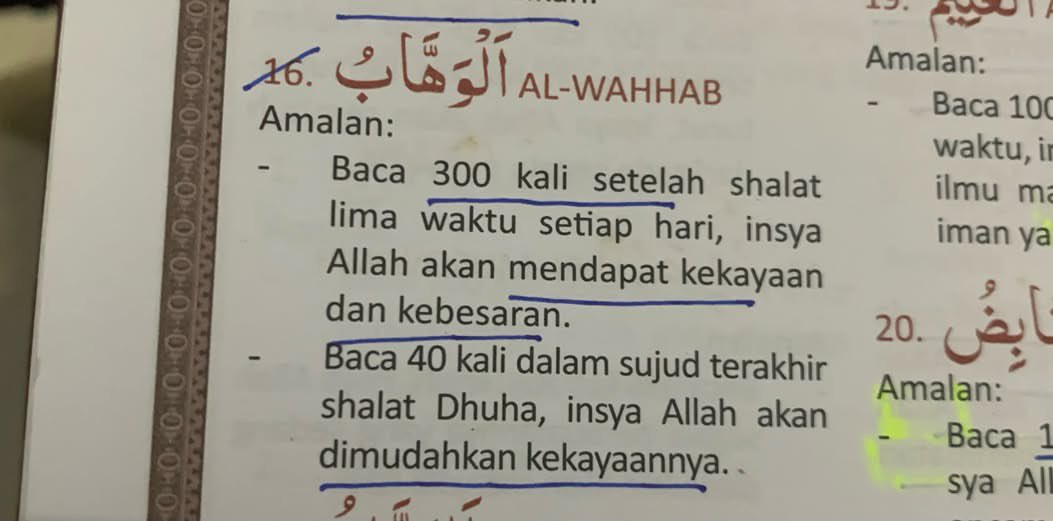 16. اَلْوَهَّابُ AL-WAHHAB
Amalan:
- Baca 300 kali setelah shalat
lima waktu setiap hari, insya
Allah akan mendapat kekayaan
dan kebesaran.
- Baca 40 kali dalam sujud terakhir
shalat Dhuha, insya Allah akan
dimudahkan kekayaannya.
19.
Amalan:
- Baca 100
waktu,
ilmu
iman
20.
Amalan:
- Baca 1
sya